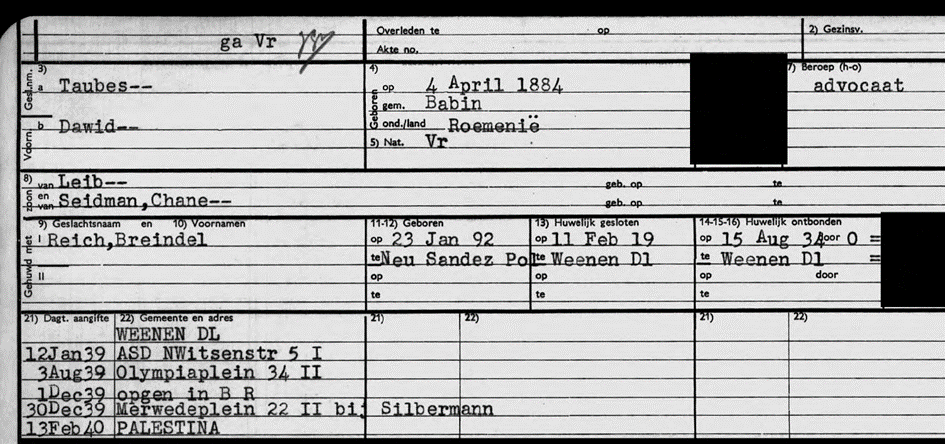 ga Vr
Overleden te op
Akte no.
2) Gezinsv.
Gesl.nm. 3) a Taubes--
4) Geboren op 4 April 1884
gem. Babin
7) Beroep (h-o)
advocaat
Voorn. b Dawid--
ond./land Roemenië
5) Nat. Vr
8) zoon van Leib-- geb. op te
en van Seidman,Chane-- geb. op te
Gehuwd met 9) Geslachtsnaam en 10) Voornamen 11-12) Geboren 13) Huwelijk gesloten 14-15-16) Huwelijk ontbonden
I Reich,Breindel op 23 Jan 92 op 11 Feb 19 op 15 Aug 34 door O =
te Neu Sandez Pol te Weenen Dl te Weenen Dl =
II op op op door
te te te
21) Dagt. aangifte 22) Gemeente en adres 21) 22) 21) 22)
WEENEN DL
12Jan39 ASD NWitsenstr 5 I
3Aug39 Olympiaplein 34 II
1Dec39 opgen in B R
30Dec39 Merwedeplein 22 II bij Silbermann
13Feb40 PALESTINA